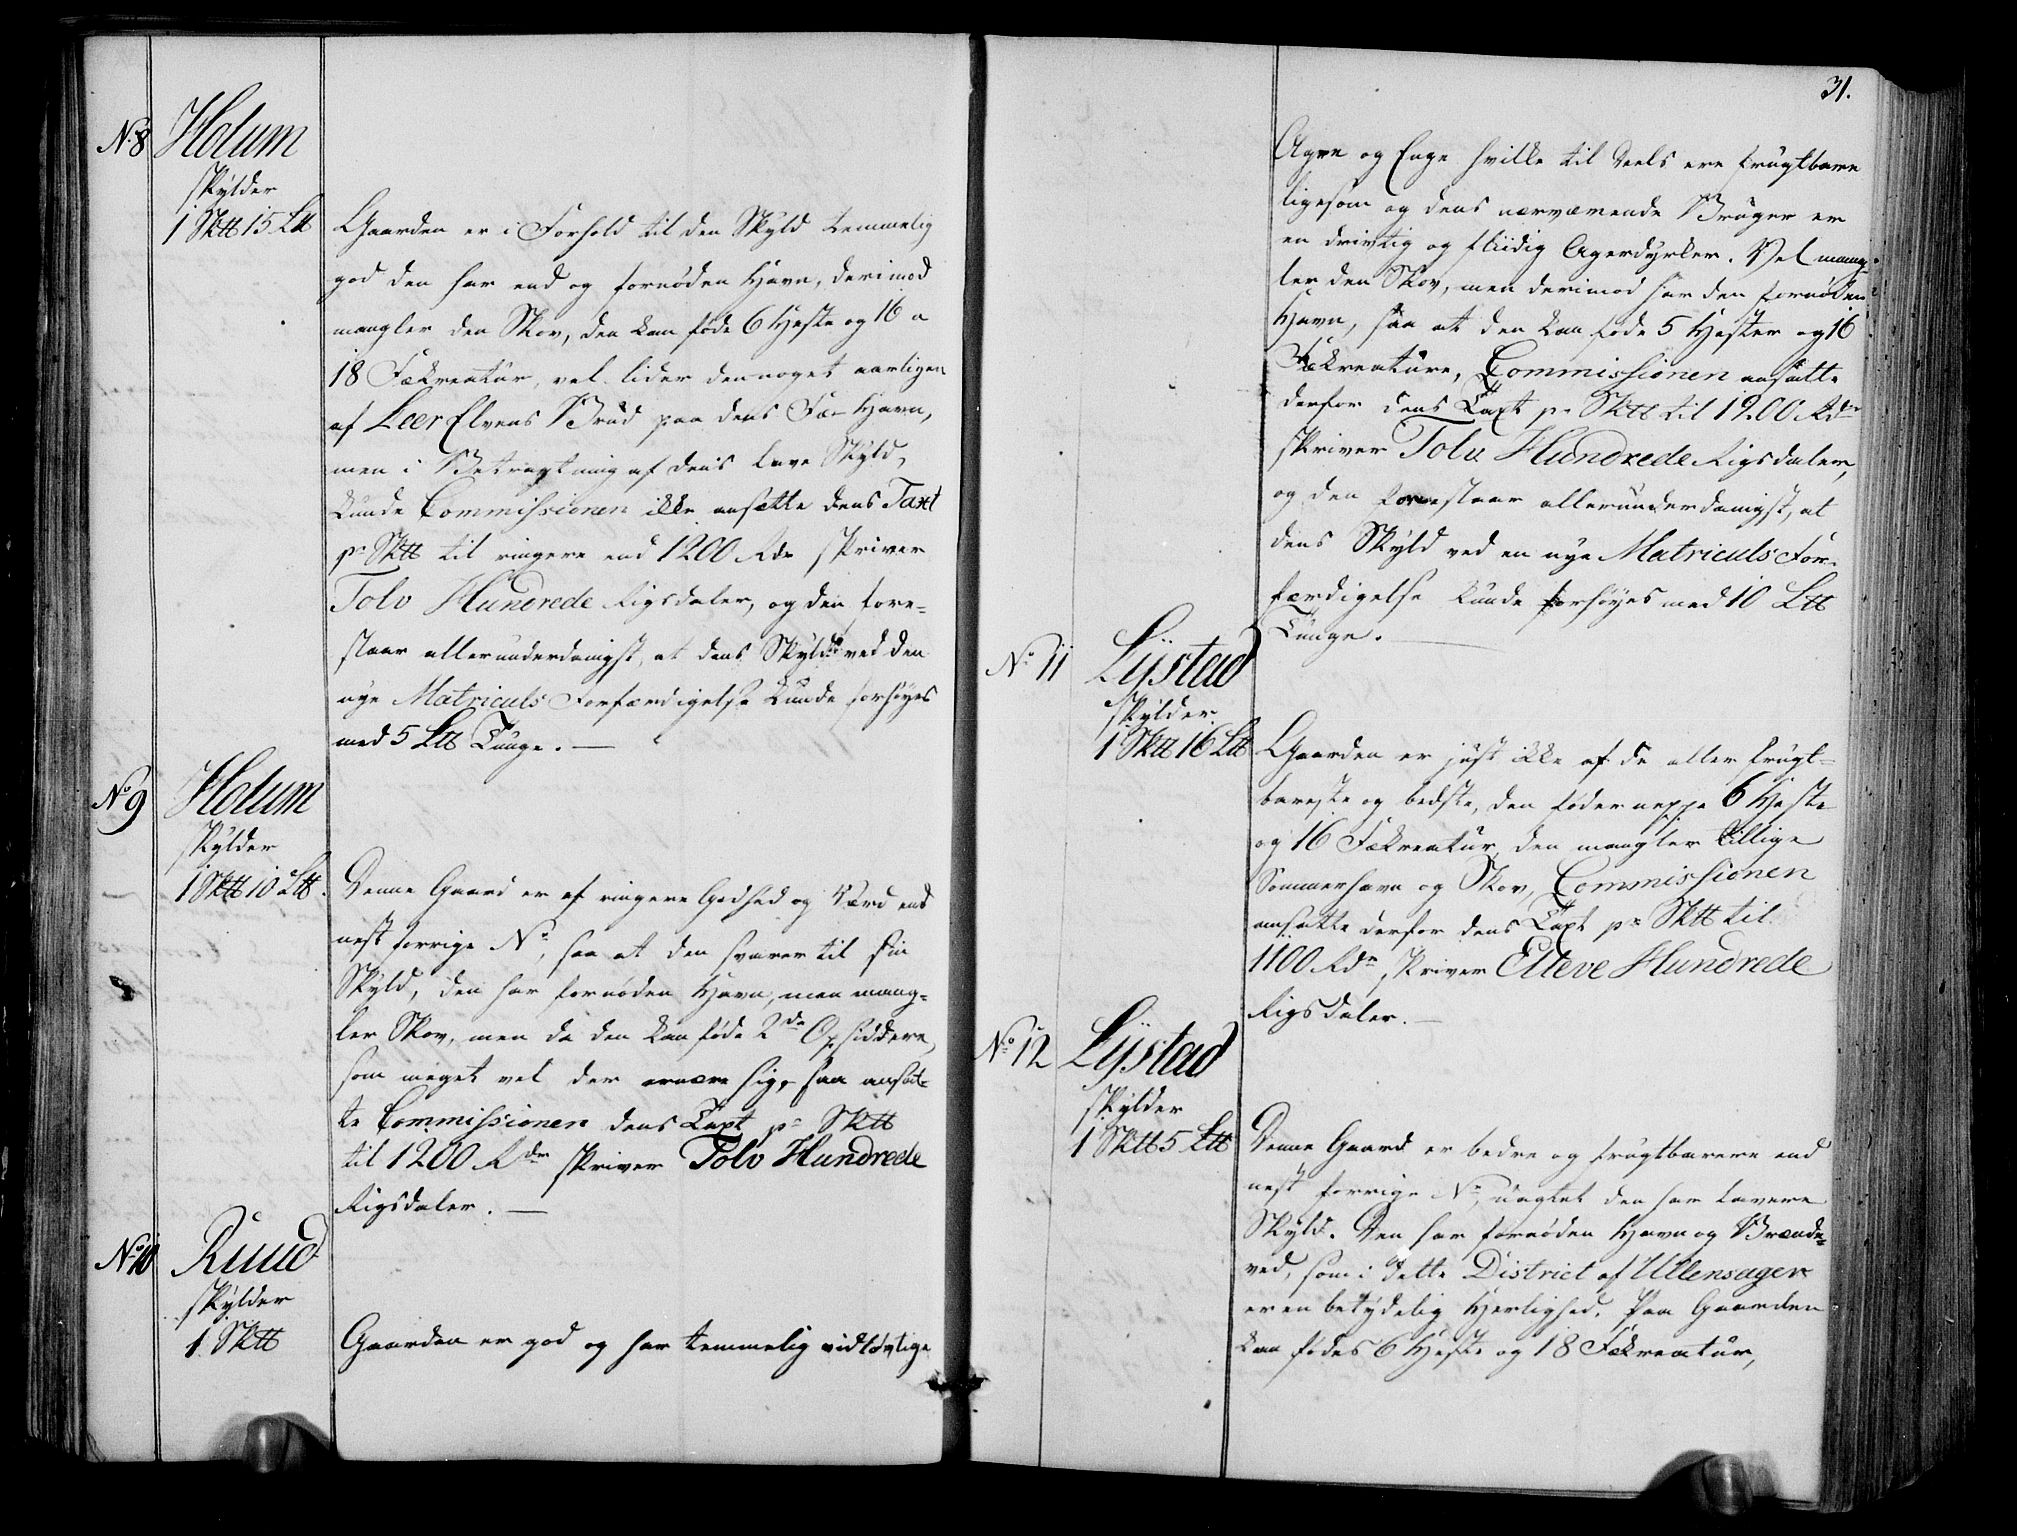 No 8
Holum
skylder
1 Sk℔ 15 L℔
Gaarden er i Forhold til den Skyld temmelig
god den har end og fornøden Havn, derimod
mangler den Skov, den kan føde 6 Heste og 16 a
18 Fækreatur, vel lider den noget aarligen
af Leer Elvens Brud paa dens Fæ-Havn,
men i Betragtning af dens lave Skyld,
kunde Commissionen ikke ansætte dens Taxt
pr Sk℔ til ringere end 1200 Rdr skriver
Tolv Hundrede Rigsdaler, og den fore-
staar allerunderdanigst, at dens Skyld ved den
nye Matriculs Forfærdigelse kunde forhøyes
med 5 L℔ Tunge. —
No 9
Holum
skylder
1 Sk℔ 10 L℔.
Denne Gaard er af ringere Godhed og Værd end
nest forrige No, saa at den svarer til sin
Skyld, den har fornøden Havn, men mang-
ler Skov, men da den kan føde 2de Opsiddere,
som meget vel der ernære sig, saa ansat-
te Commissionen dens Taxt pr Sk℔
til 1200 Rdr skriver Tolv Hundrede
Rigsdaler. —
No 10
Ruud
skylder
1 Sk℔
Gaarden er god og har temmelig vidtløvtige
31.
Agre og Enge hvilke til deels ere frugtbare
ligesom og dens nærværende Bruger er
en drivtig og fliidig Agerdyrker. Vel mang-
ler den Skov, men derimod har den fornøden
Havn, saa at den kan føde 5 Hester og 16
Fækreature, Commissionen ansatte
derfor dens Taxt pr Sk℔ til 1200 Rdr
skriver Tolv Hundrede Rigsdaler,
og den forestaar allerunderdanigst, at
dens Skyld ved en nye Matriculs For-
færdigelse kunde forhøyes med 10 L℔
Tunge. —
No 11
Lÿstad
skylder
1 Sk℔ 16 L℔
Gaarden er just ikke af de aller frugt-
bareste og bedste, den føder neppe 6 Heste
og 16 Fækreatur, den mangler tillige
Sommerhavn og Skov, Commissionen
ansatte derfor dens Taxt pr Sk℔ til
1100 Rdr skriver Elleve Hundrede
Rigsdaler. —
No 12
Lÿstad
skylder
1 Sk℔ 5 L℔
Denne Gaard er bedre og frugtbarere end
nest forrige No, uagtet den har lavere
Skyld. Den har fornøden Havn og Brænde-
ved, som i dette District af Ullensager
er en betydelig Herlighed. Paa Gaarden
kan fødes 6 Heste og 18 Fækreatur,